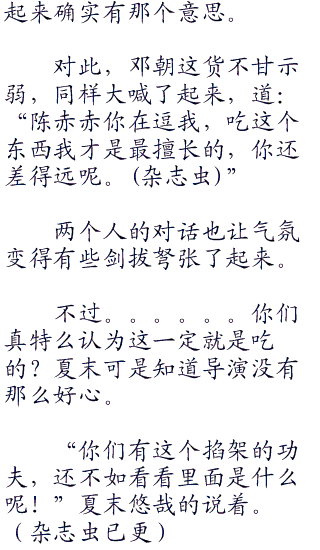 起来确实有那个意思。
对此，邓朝这货不甘示
弱，同样大喊了起来，道：
“陈赤赤你在逗我，吃这个
东西我才是最擅长的，你还
差得远呢。(杂志虫)”
两个人的对话也让气氛
变得有些剑拔弩张了起来。
不过。。。。。。你们
真特么认为这一定就是吃
的？夏末可是知道导演没有
那么好心。
“你们有这个掐架的功
夫，还不如看看里面是什么
呢！”夏末悠哉的说着。
（杂志虫已更）